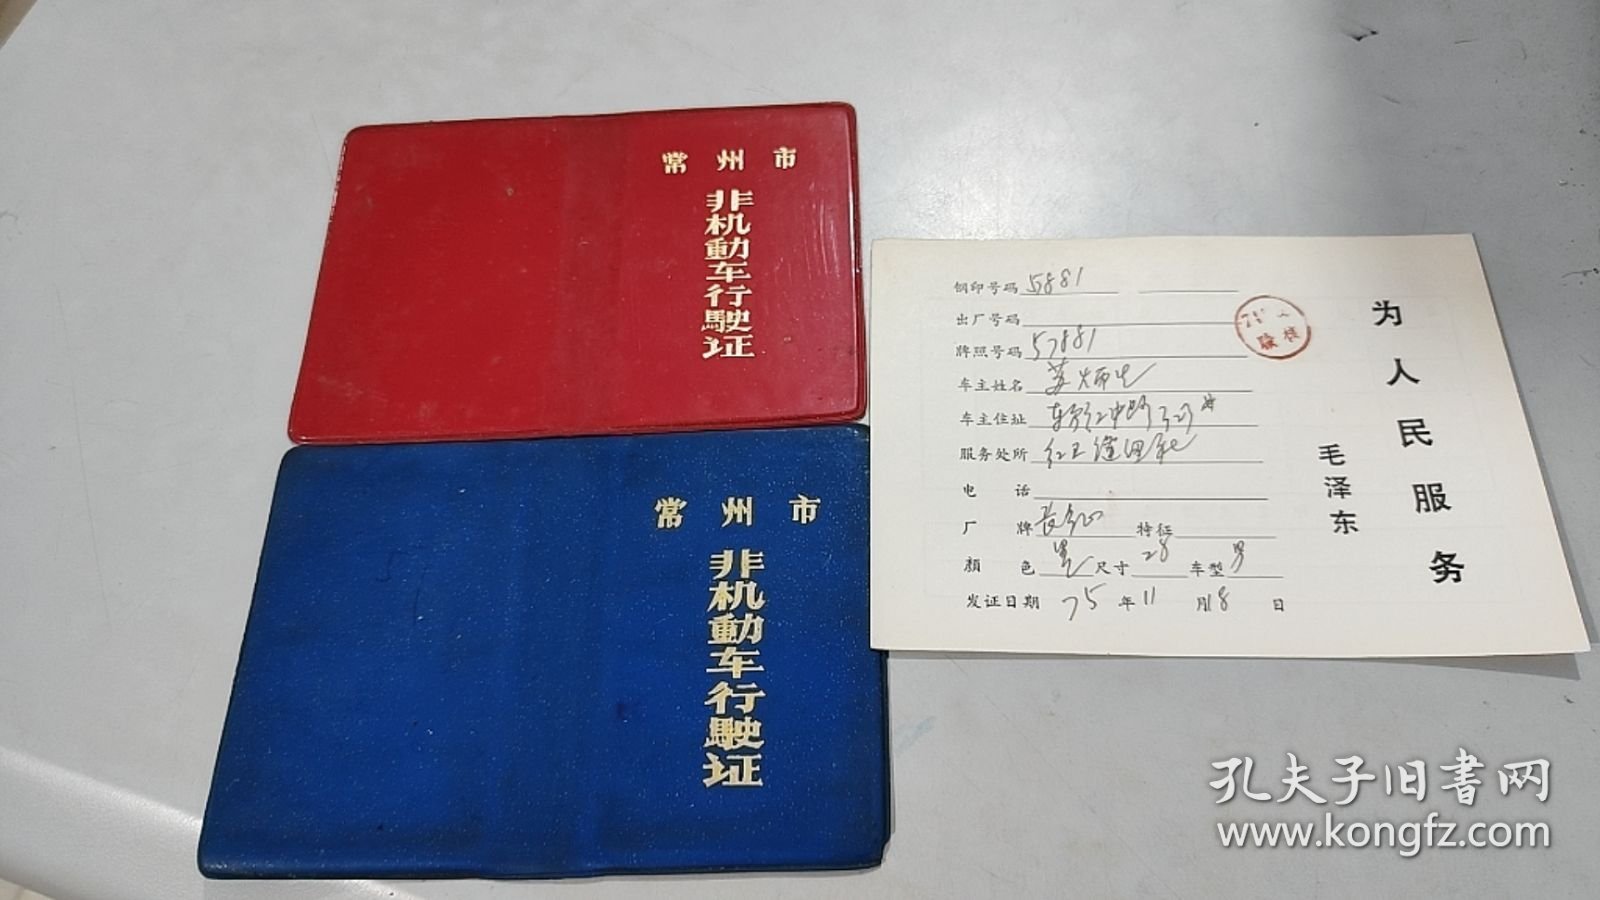 常州市
非机動车行駛证
常州市
非机動车行駛证
钢印号码 5881
出厂号码
牌照号码 57881
车主姓名
车主住址
服务处所
电话
厂牌 特征
颜色 黑 尺寸 28 车型 男
发证日期 75年11月18日
验 核
为人民服务
毛泽东
孔夫子旧書网
www.kongfz.com